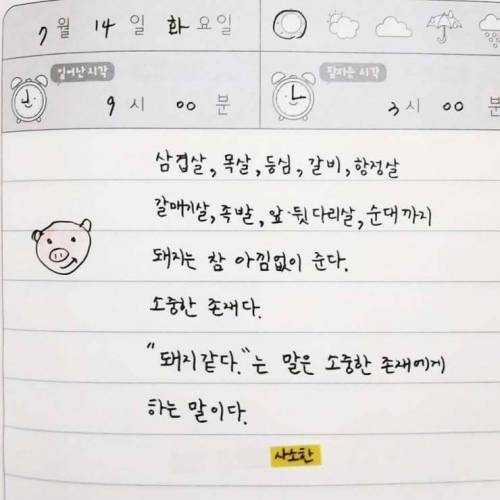 7월 14일 화요일
일어난시각 잠자는 시각
9시 00분 3시 00분
삼겹살, 목살, 등심, 갈비, 항정살
갈매기살, 족발, 앞·뒷다리살, 순대까지
돼지는 참 아낌없이 준다.
소중한 존재다.
"돼지같다."는 말은 소중한 존재에게
하는 말이다.
사소한